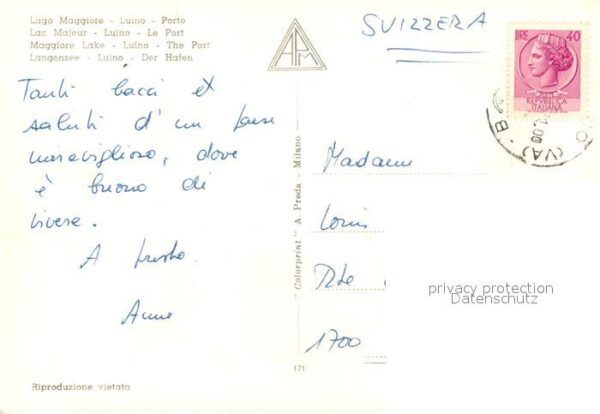 Lago Maggiore - Luino - Porto
Lac Majeur - Luino - Le Port
Maggiore Lake - Luino - The Port
Langensee - Luino - Der Hafen
APM
SVIZZERA
LIRE 40
REPVBBLICA
ITALIANA
(VA)
Tanti bacci et
saluti d'un paese
meraviglioso, dove
è buono di
vivere.
A presto
Anne
"Colorprint" A. Preda - Milano
Madame
Louis
Rte
1700
privacy protection
Datenschutz
Riproduzione vietata
171